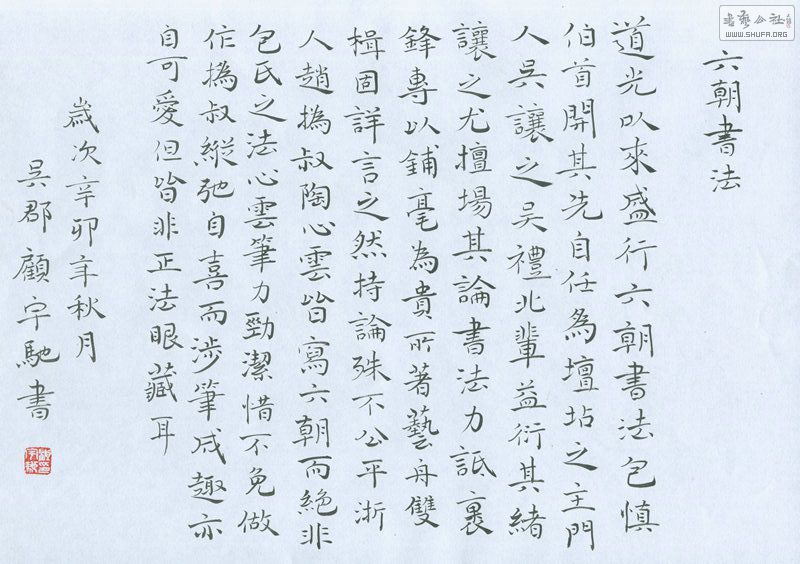 六朝書法
道光以來盛行六朝書法包慎
伯首開其先自任為壇坫之主門
人吳讓之吳禮北輩益衍其緒
讓之尤擅場其論書法力詆裹
鋒專以鋪毫為貴所著藝舟雙
楫固詳言之然持論殊不公平浙
人趙撝叔陶心雲皆寫六朝而絕非
包氏之法心雲筆力勁潔惜不免做
作撝叔縱弛自喜而涉筆成趣亦
自可愛但皆非正法眼藏耳
歲次辛卯年秋月
吳郡顧宇馳書
書藝公社
WWW.SHUFA.ORG